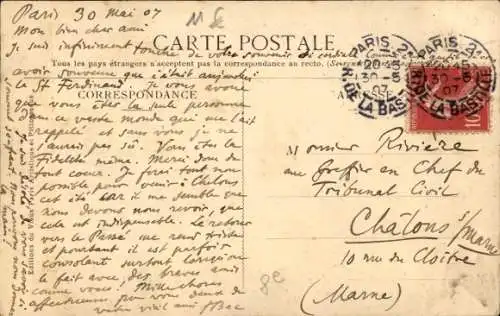 Paris 30 Mai 07
Mon bien cher ami
Je suis infiniment touché de votre souvenir si cordial
CARTE POSTALE
Tous les pays étrangers n'acceptent pas la correspondance au recto.
CORRESPONDANCE
avoir souvenu que c'était aujourd'hui
la St Ferdinand. Je vous avoue
que vous êtes la seule personne
dans ce vaste monde qui me l'ait
rappelé et sans vous je ne
l'aurais pas sû. Vous êtes la
fidélité même. Merci donc de
tout coeur. Je ferai tout mon
possible pour venir à Chalons
cet été car il me semble que
nous devons nous revoir, que
cela est indispensable. Le retour
vers le Passé me rend triste
et pourtant il est parfois
consolant surtout lorsqu'on
le fait avec des braves amis
comme vous! Mille choses
affectueuses pour vous deux de
votre vieil ami
PARIS
30 -5
07
R. DE LA BASTILLE
PARIS
30 -5
07
R. DE LA BASTILLE
10
Monsieur Rivière
au Greffier en Chef du
Tribunal Civil
Châlons s/Marne
10 rue du Cloître
(Marne)